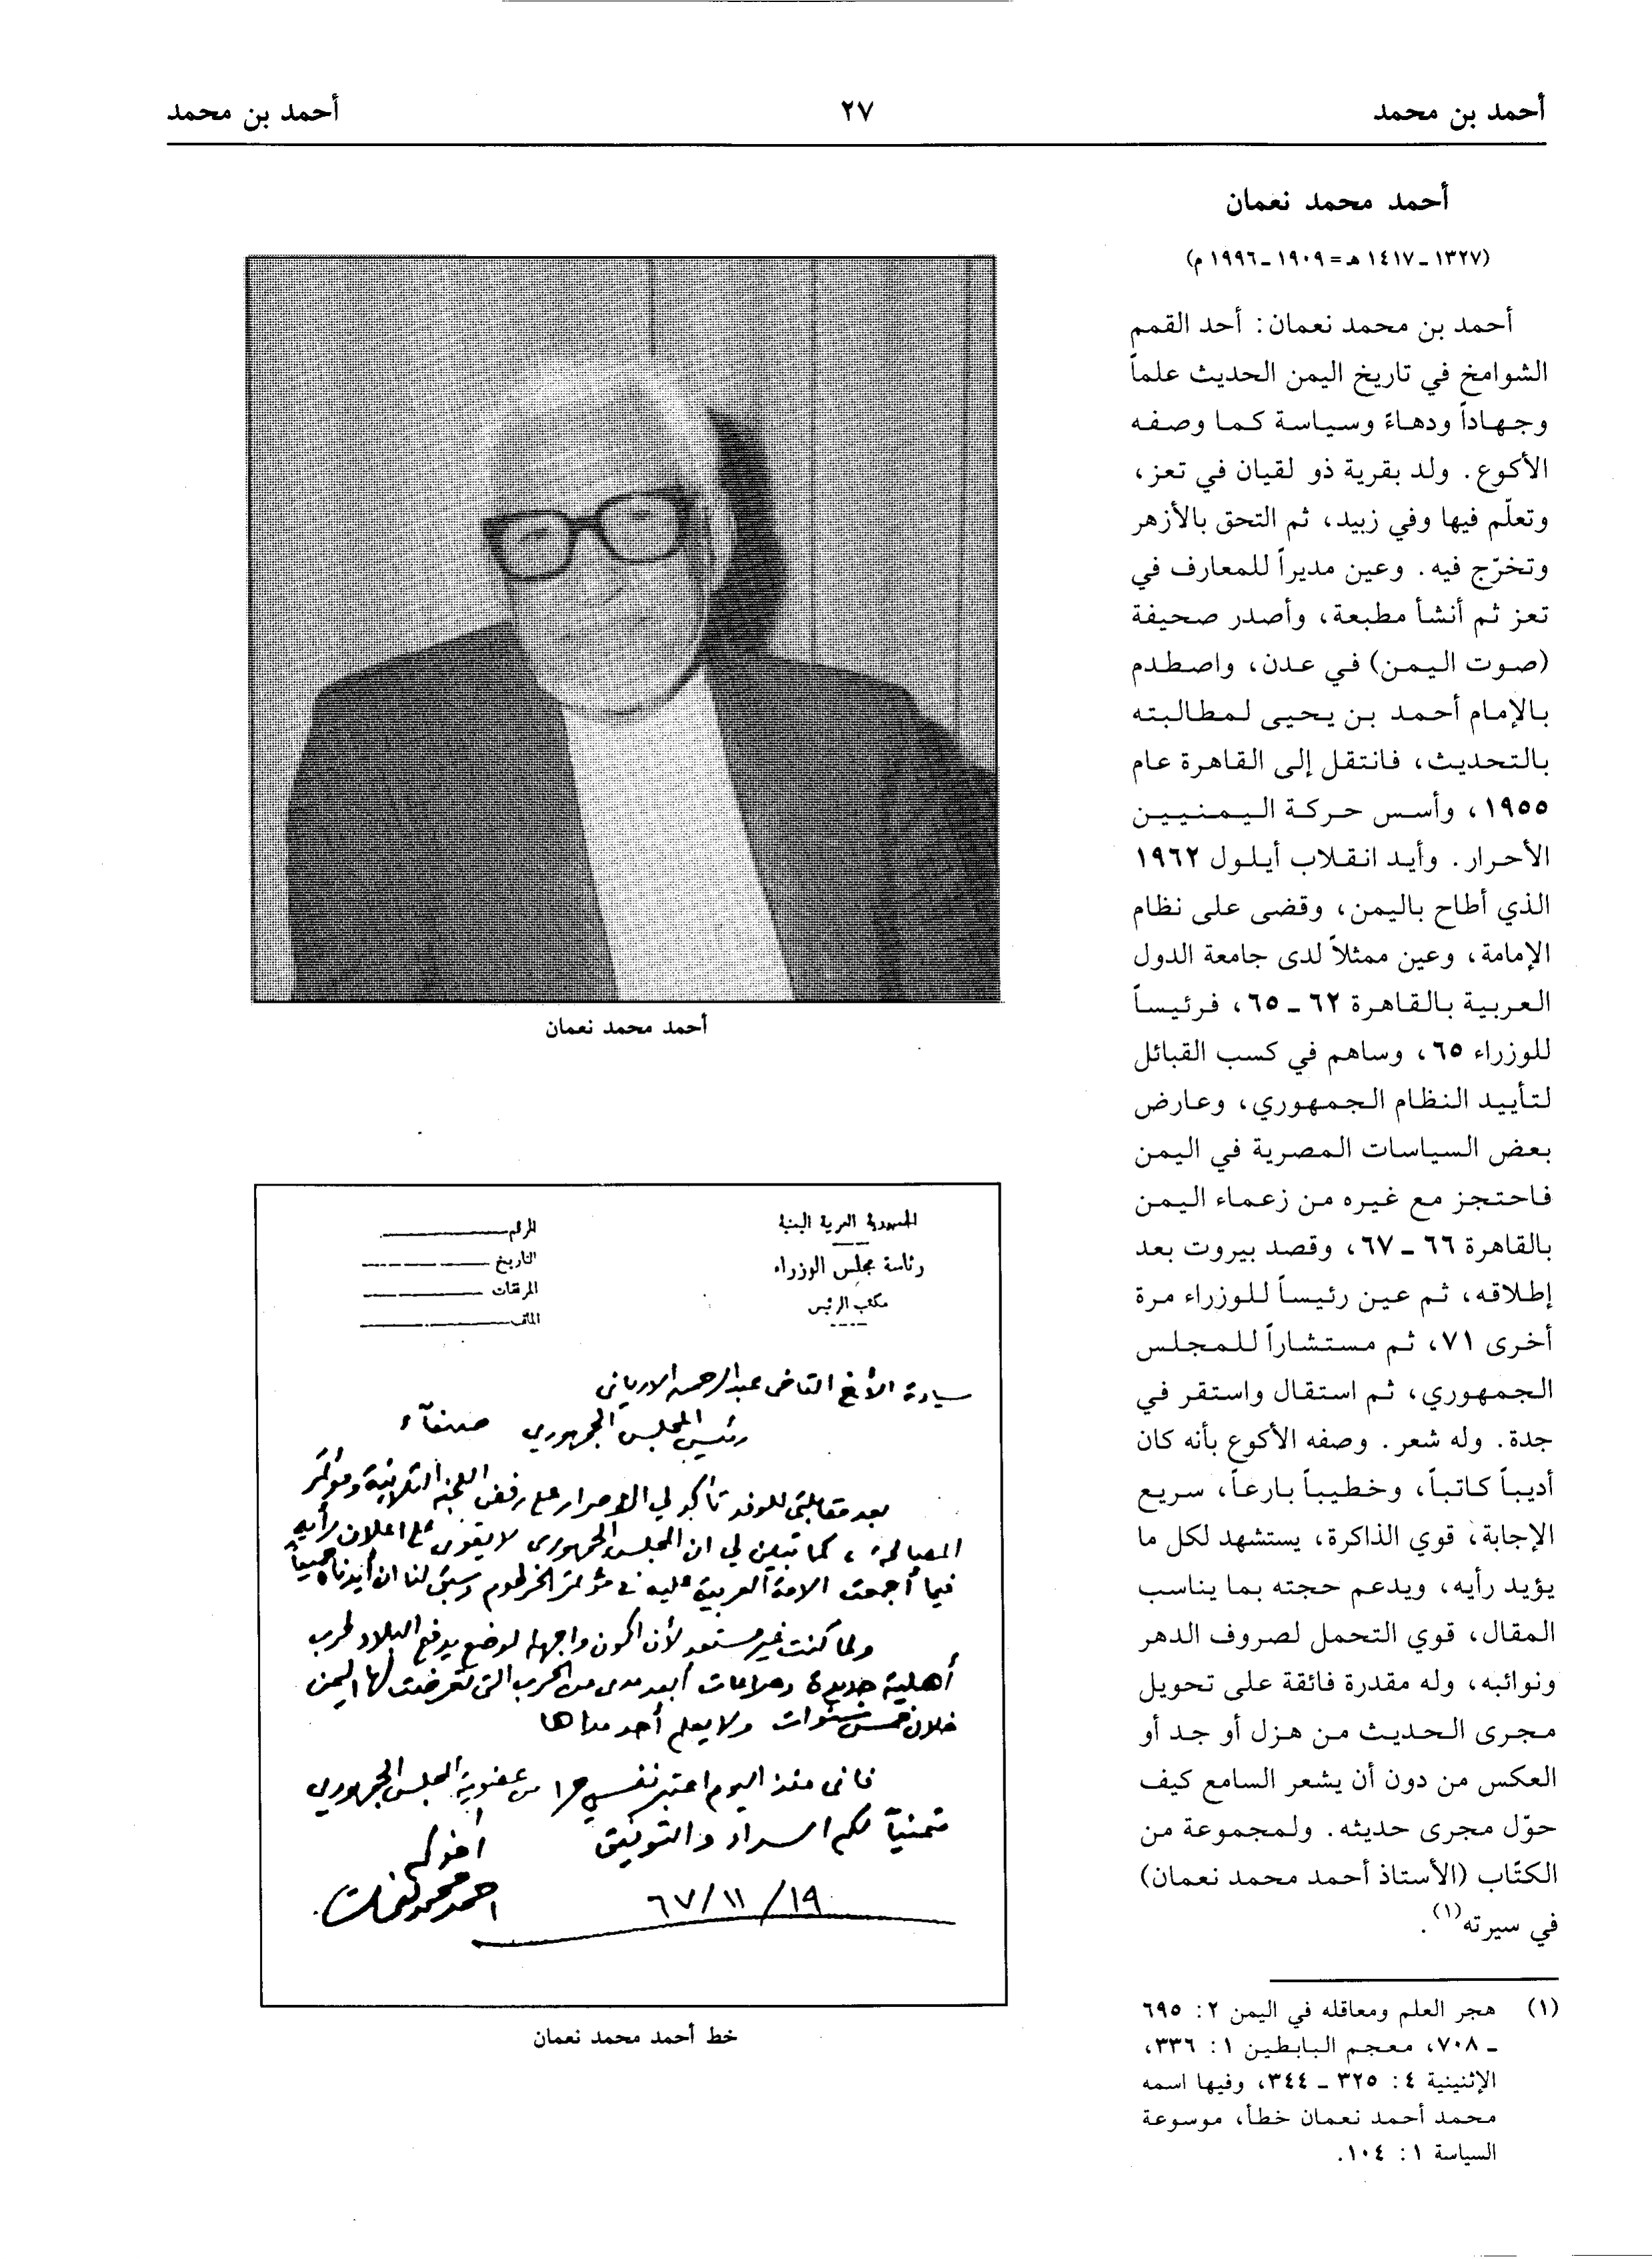 أحمد بن محمد
٢٧
أحمد بن محمد
أحمد محمد نعمان
(١٣٢٧ ـ ١٤١٧ هـ = ١٩٠٩ ـ ١٩٩٦ م)
أحمد بن محمد نعمان: أحد القمم
الشوامخ في تاريخ اليمن الحديث علماً
وجهاداً ودهاءً وسياسة كما وصفه
الأكوع. ولد بقرية ذو لقيان في تعز،
وتعلّم فيها وفي زبيد، ثم التحق بالأزهر
وتخرّج فيه. وعين مديراً للمعارف في
تعز ثم أنشأ مطبعة، وأصدر صحيفة
(صوت اليمن) في عدن، واصطدم
بالإمام أحمد بن يحيى لمطالبته
بالتحديث، فانتقل إلى القاهرة عام
١٩٥٥، وأسس حركة اليمنيين
الأحرار. وأيد انقلاب أيلول ١٩٦٢
الذي أطاح باليمن، وقضى على نظام
الإمامة، وعين ممثلاً لدى جامعة الدول
العربية بالقاهرة ٦٢ ـ ٦٥، فرئيساً
للوزراء ٦٥، وساهم في كسب القبائل
لتأييد النظام الجمهوري، وعارض
بعض السياسات المصرية في اليمن
فاحتجز مع غيره من زعماء اليمن
بالقاهرة ٦٦ ـ ٦٧، وقصد بيروت بعد
إطلاقه، ثم عين رئيساً للوزراء مرة
أخرى ٧١، ثم مستشاراً للمجلس
الجمهوري، ثم استقال واستقر في
جدة. وله شعر. وصفه الأكوع بأنه كان
أديباً كاتباً، وخطيباً بارعاً، سريع
الإجابة، قوي الذاكرة، يستشهد لكل ما
يؤيد رأيه، ويدعم حجته بما يناسب
المقال، قوي التحمل لصروف الدهر
ونوائبه، وله مقدرة فائقة على تحويل
مجرى الحديث من هزل أو جد أو
العكس من دون أن يشعر السامع كيف
حوّل مجرى حديثه. ولمجموعة من
الكتّاب (الأستاذ أحمد محمد نعمان)
في سيرته(١).
(١) هجر العلم ومعاقله في اليمن ٢: ٦٩٥
ـ ٧٠٨، معجم البابطين ١: ٣٣٦،
الإثنينية ٤: ٣٢٥ ـ ٣٤٤، وفيها اسمه
محمد أحمد نعمان خطأ، موسوعة
السياسة ١: ١٠٤.
أحمد محمد نعمان
الجمهورية العربية اليمنية
رئاسة مجلس الوزراء
مكتب الرئيس
الرقم
التاريخ
المرفقات
الملف
سيادة الأخ القاضي عبدالرحمن الارياني
رئيس المجلس الجمهوري صنعآء
بعد مقابلتي للوفد تأكد لي الاصرار على رفض اللجنة الثلاثية ومؤتمر
المصالحة، كما تبين لي ان المجلس الجمهوري لا يقوى على اعلان رأيه
فيما أجمعت الامة العربية عليه في مؤتمر الخرطوم وسبق لنا ان أيدناه جميعاً
ولما كنت غير مستعد لأن اكون واجهة لوضع يدفع البلاد لحرب
أهلية جديدة وصراعات أبعد مدى من الحرب التي تعرضت لها اليمن
خلال خمس سنوات ولا يعلم أحد مداها
فاني منذ اليوم اعتبر نفسي حرا من عضوية المجلس الجمهوري
متمنيآ لكم السداد والتوفيق
أخوكم
احمد محمد نعمان
١٩/ ١١/ ٦٧
خط أحمد محمد نعمان